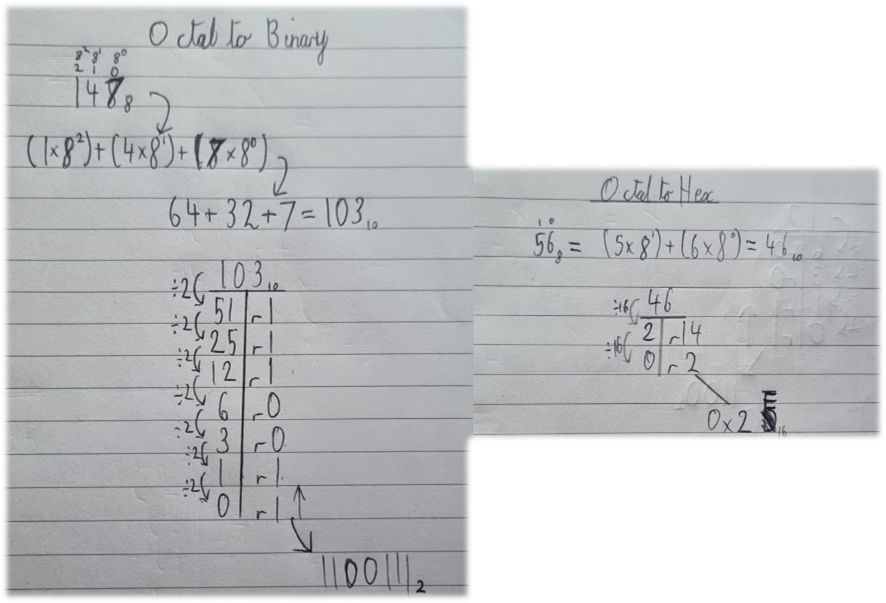 Octal to Binary
8² 8¹ 8⁰
2 1 0
14 ₈
(1×8²)+(4×8¹)+( ×8⁰)
64+32+7=103₁₀
÷2 103₁₀
÷2 51 r1
÷2 25 r1
÷2 12 r1
÷2 6 r0
÷2 3 r0
÷2 1 r1
0 r1
1100111₂
Octal to Hex
1 0
56₈ = (5×8¹)+(6×8⁰)=46₁₀
÷16 46
÷16 2 r14
0 r2
0x2 ₁₆